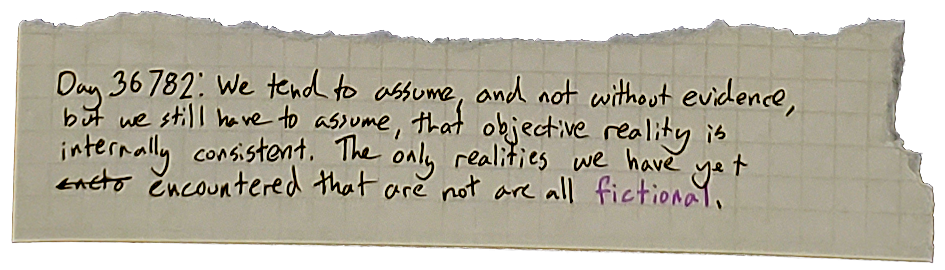 Day 36782: We tend to assume, and not without evidence,
but we still have to assume, that objective reality is
internally consistent. The only realities we have yet
encto encountered that are not are all fictional.